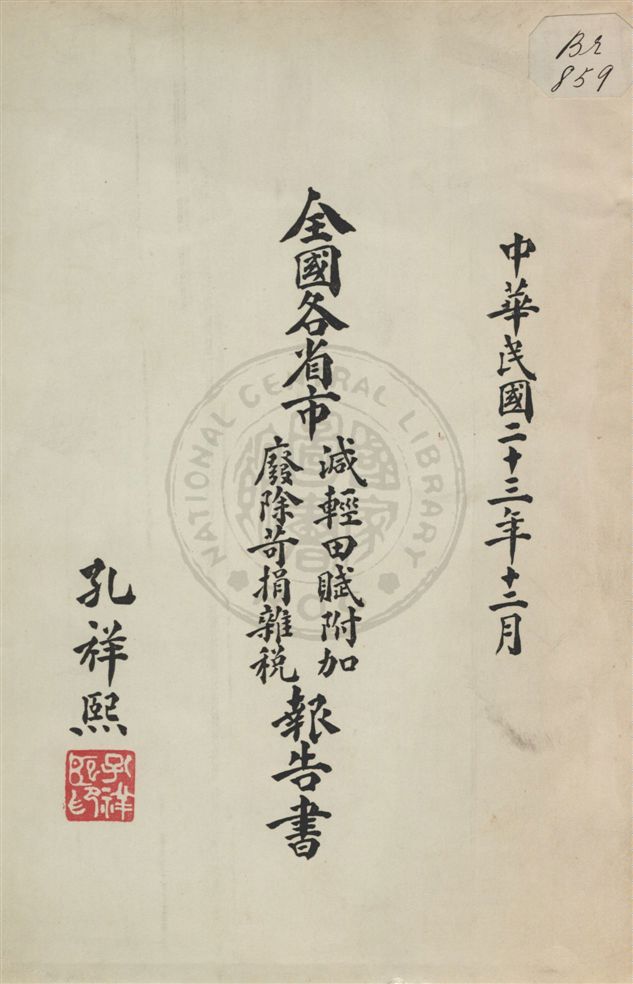 Br
859
中華民國二十三年十二月
全國各省市
減輕田賦附加
廢除苛捐雜稅
報告書
孔祥熙
孔祥熙印
NATIONAL CENTRAL LIBRARY